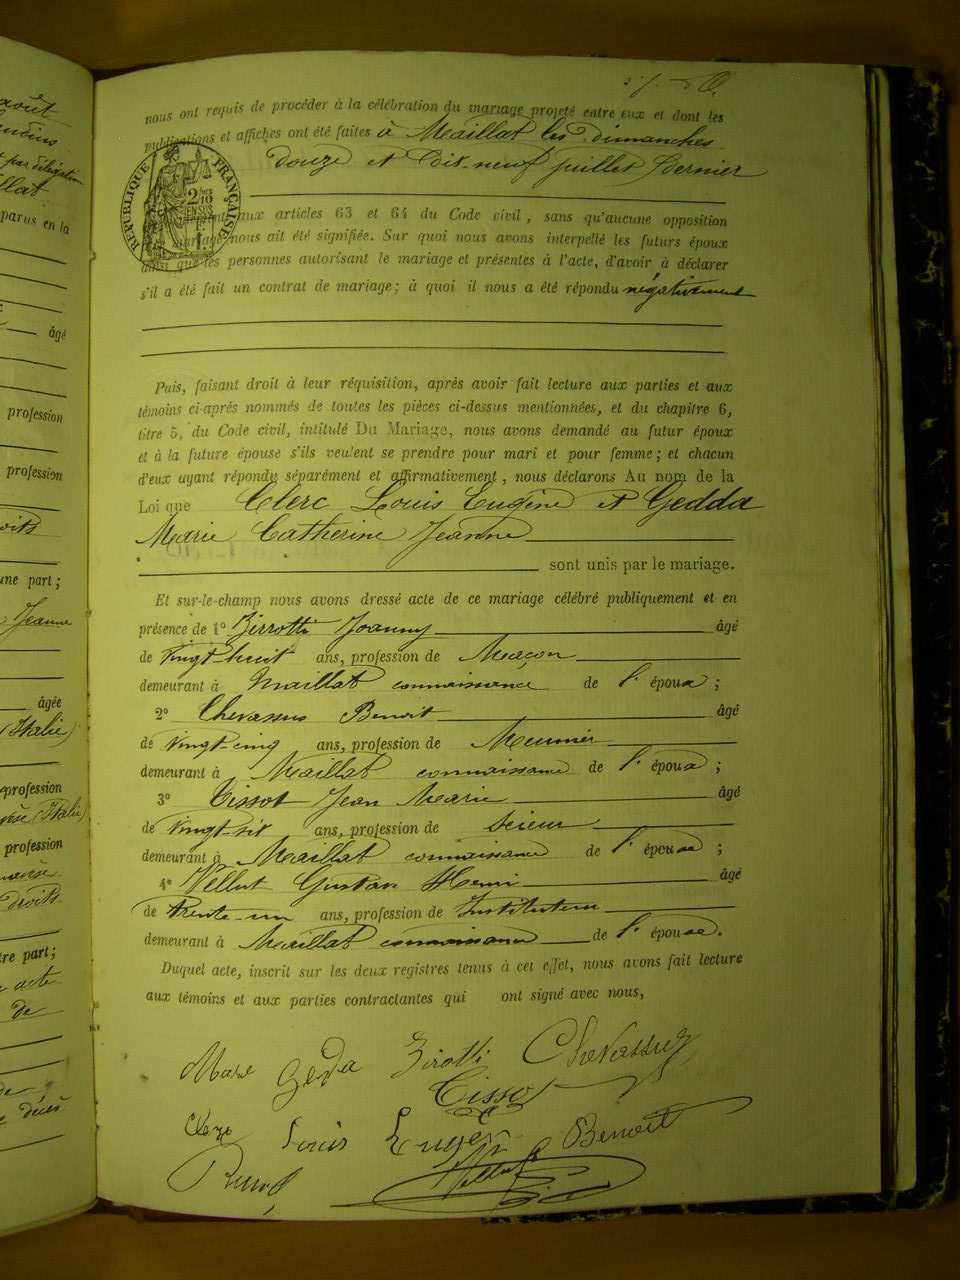 nous ont requis de procéder à la célébration du mariage projeté entre eux et dont les
publications et affiches ont été faites à Maillat les dimanches
douze et dix-neuf juillet dernier
RÉPUBLIQUE FRANÇAISE
2/10 EN SUS
aux articles 63 et 64 du Code civil, sans qu'aucune opposition
mariage nous ait été signifiée. Sur quoi nous avons interpellé les futurs époux
ainsi que les personnes autorisant le mariage et présentes à l'acte, d'avoir à déclarer
s'il a été fait un contrat de mariage; à quoi il nous a été répondu négativement
Puis, faisant droit à leur réquisition, après avoir fait lecture aux parties et aux
témoins ci-après nommés de toutes les pièces ci-dessus mentionnées, et du chapitre 6,
titre 5, du Code civil, intitulé Du Mariage, nous avons demandé au futur époux
et à la future épouse s'ils veulent se prendre pour mari et pour femme; et chacun
d'eux ayant répondu séparément et affirmativement, nous déclarons Au nom de la
Loi que Clerc Louis Eugène et Gedda
Marie Catherine Jeanne
sont unis par le mariage.
Et sur-le-champ nous avons dressé acte de ce mariage célébré publiquement et en
présence de 1° Zirrotti Joanny âgé
de vingt-huit ans, profession de Maçon
demeurant à Maillat connaissance de l'époux;
2° Chevassus Benoit âgé
de vingt-cinq ans, profession de Meunier
demeurant à Maillat connaissance de l'époux;
3° Tissot Jean Marie âgé
de vingt-six ans, profession de scieur
demeurant à Maillat connaissance de l'épouse;
4° Vellut Gustave Henri âgé
de trente-un ans, profession de Instituteur
demeurant à Maillat connaissance de l'épouse.
Duquel acte, inscrit sur les deux registres tenus à cet effet, nous avons fait lecture
aux témoins et aux parties contractantes qui ont signé avec nous,
Marie Geda Zirotti Chevassus
Tissot
Clerc Louis Eugen Benoit
Vellut
août
par délégation
parus en la
âgé
profession
profession
droits
une part;
Jeanne
âgée
(Italie)
profession
(Italie)
profession
droits
tre part;
acte
de
de
décès